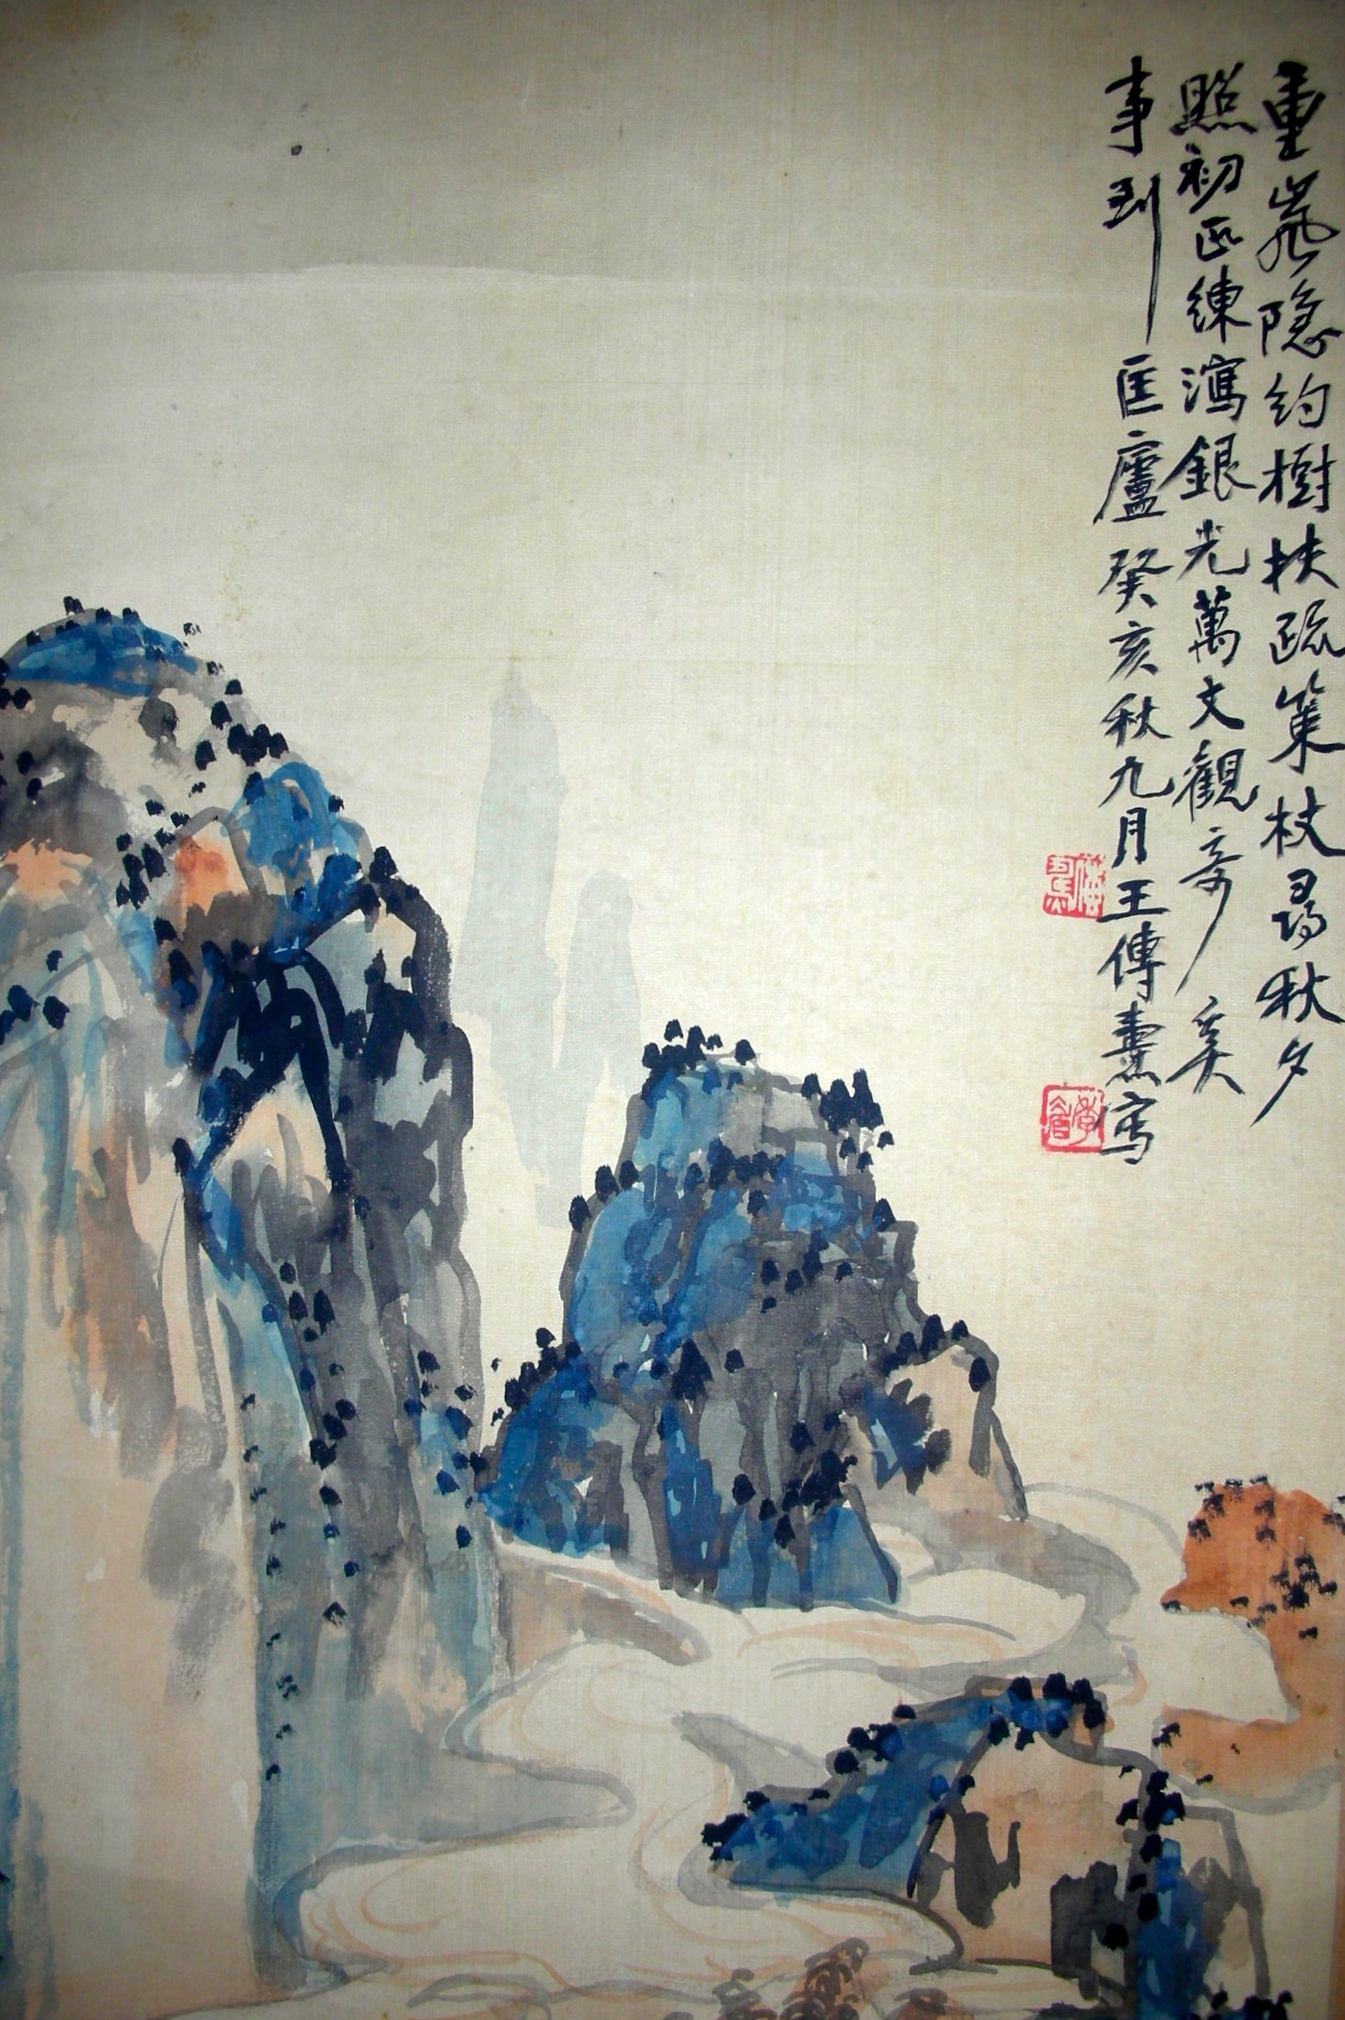 重嵐隐約樹扶疏策杖尋秋夕
照初匹練瀉銀光萬丈觀奇奚
事到匡廬癸亥秋九月王傳燾寫